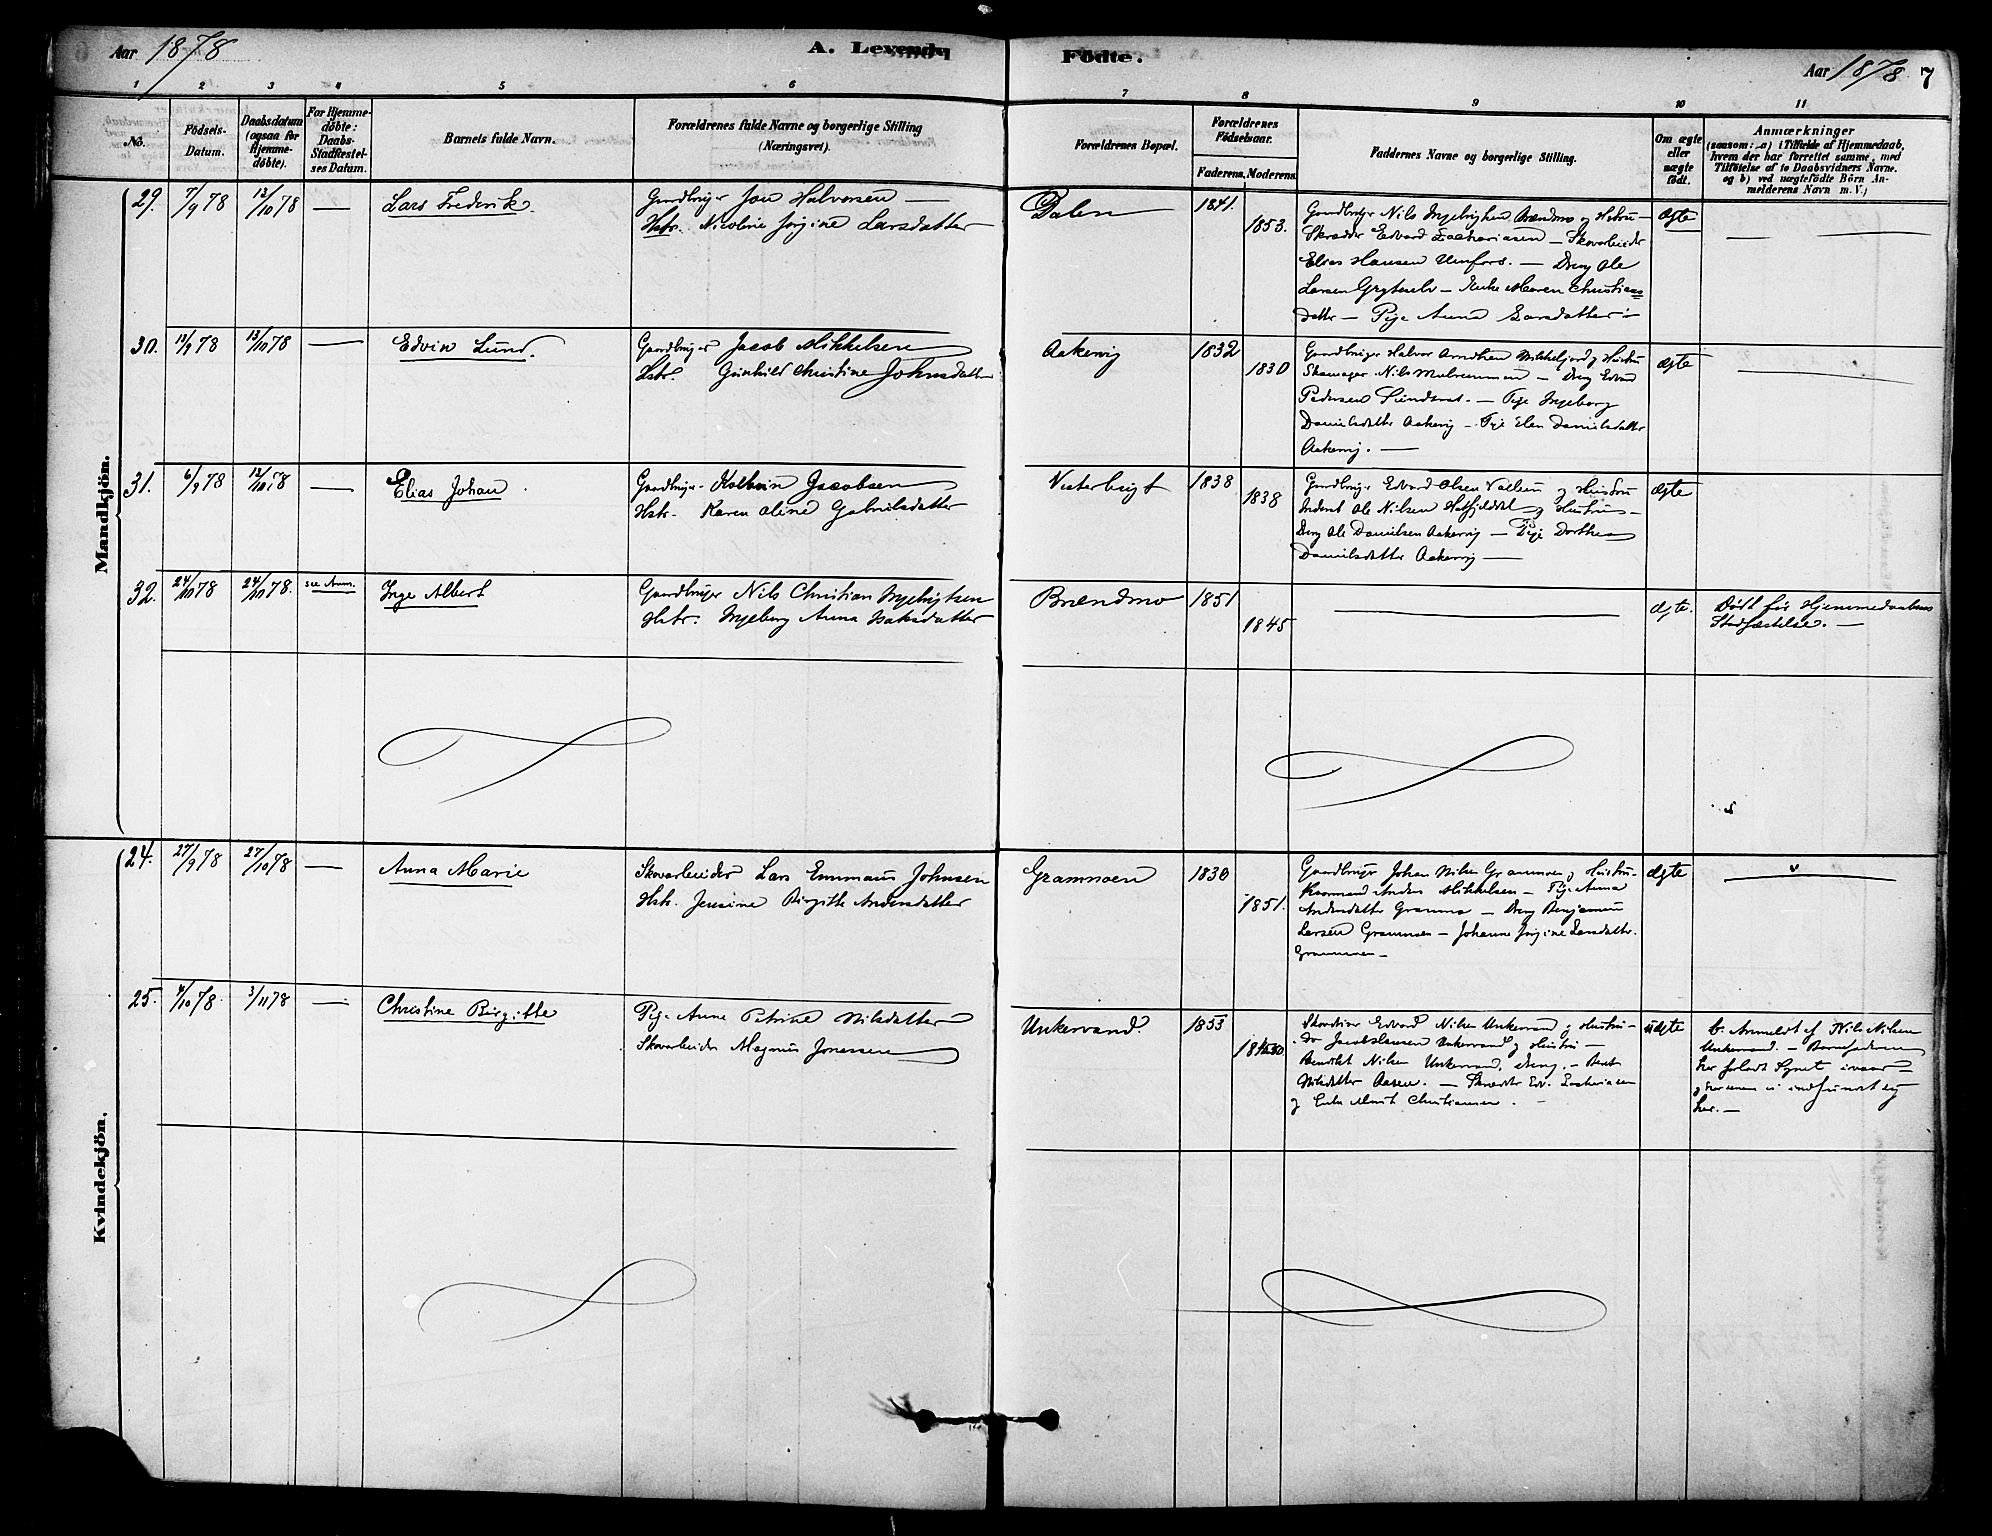 Aar 1878
A. Levende Födte.
Aar 1878. 7
1 2 3 4 5 6 7 8 9 10 11
No.
Födsels-Datum.
Daabsdatum (ogsaa for Hjemmedöbte).
For Hjemmedöbte: Daabs-Stadfæstelses Datum.
Barnets fulde Navn.
Forældrenes fulde Navne og borgerlige Stilling (Næringsvei).
Forældrenes Bopæl.
Forældrenes Födselsaar.
Faderens. Moderens.
Faddernes Navne og borgerlige Stilling.
Om ægte eller uægte födt.
Anmærkninger
(saasom: a) i Tilfælde af Hjemmedaab, hvem der har forrettet samme, med Tilföielse af to Daabsvidners Navne. og b) ved uægtefödte Börn Anmelderens Navn m. V.)
Mandkjön.
29. 7/9 78 13/10 78 — Lars Frederik.
Gaardbruger Jon Halvorsen —
Hstr. Nicoline Jörgine Larsdatter
Dalen 1841. 1853.
Gaardbruger Nils Ingebrigtsen Brændmo og Hustru —
Skrædder Edvard Zachariasen — Skovarbeider
Elias Hansen Umfors. — Dreng Ole
Larsen — Enke Maren Christians
datter — Pige Anna Larsdatter —
ægte
30. 13/9 78 13/10 78 — Edvin Lund.
Gaardbruger Jacob Mikkelsen
Hstr. Gunhild Christine Johnsdatter
Aakervig 1832 1830
Gaardbruger Halvor Arntsen og Hustru
Skomager Nils — Dreng Edvard
Pedersen — Pige Ingeborg
Danielsdatter Aakervig — Pige Elen Danielsdatter
Aakervig. —
ægte
31. 6/9 78 13/10 78 — Elias Johan
Gaardbruger Jacobsen
Hstr. Karen Oline Gabrielsdatter
Vesterbugt 1838 1838
Gaardbruger Edvard Olsen og Hustru
Inderst Ole Nilsen Hatfjelddal og Hustru —
Dreng Ole Danielsen Aakervig — Pige Dorthea
Danielsdatter Aakervig —
ægte
32. 24/10 78 24/10 78. see Anm. Inge Albert
Gaardbruger Nils Christian Ingebrigtsen
Hstr. Ingeborg Anna Isaksdatter
Brændmo 1851 1845
ægte.
Dödt för Hjemmedaabens
Stadfæstelse. —
Kvindekjön.
24. 27/9 78 27/10 78 — Anna Marie
Skovarbeider Lars Emmaus Johnsen
Hstr. Jensine Birgitte Andersdatter
Gramnoen 1830 1851.
Gaardbruger Johan Nilsen og Hustru —
Anders Mikkelsen — Pige Anna
Andersdatter — Dreng Benjamin
Larsen — Johanne Jörgine Larsdatter.
ægte
25. 4/10 78. 3/11 78 — Christine Birgitte
Pige Anne Petrine Nilsdatter
Skovarbeider Magnus Jonassen
Unkervand. 1853
Edvard Nilsen Unkervand og Hustru —
Do Jacob Hansen Unkervand og Hustru —
Benedikt Nilsen Unkervand, Dreng. —
Nilsdatter — Skrædder Edv. Zachariasen
og Christiansen. —
uægte
b. Anmeldt af Nils Nilsen
Unkervand. — Barnefaderen
har forladt Sognet ivaar
og har ei indfundet sig
her. —